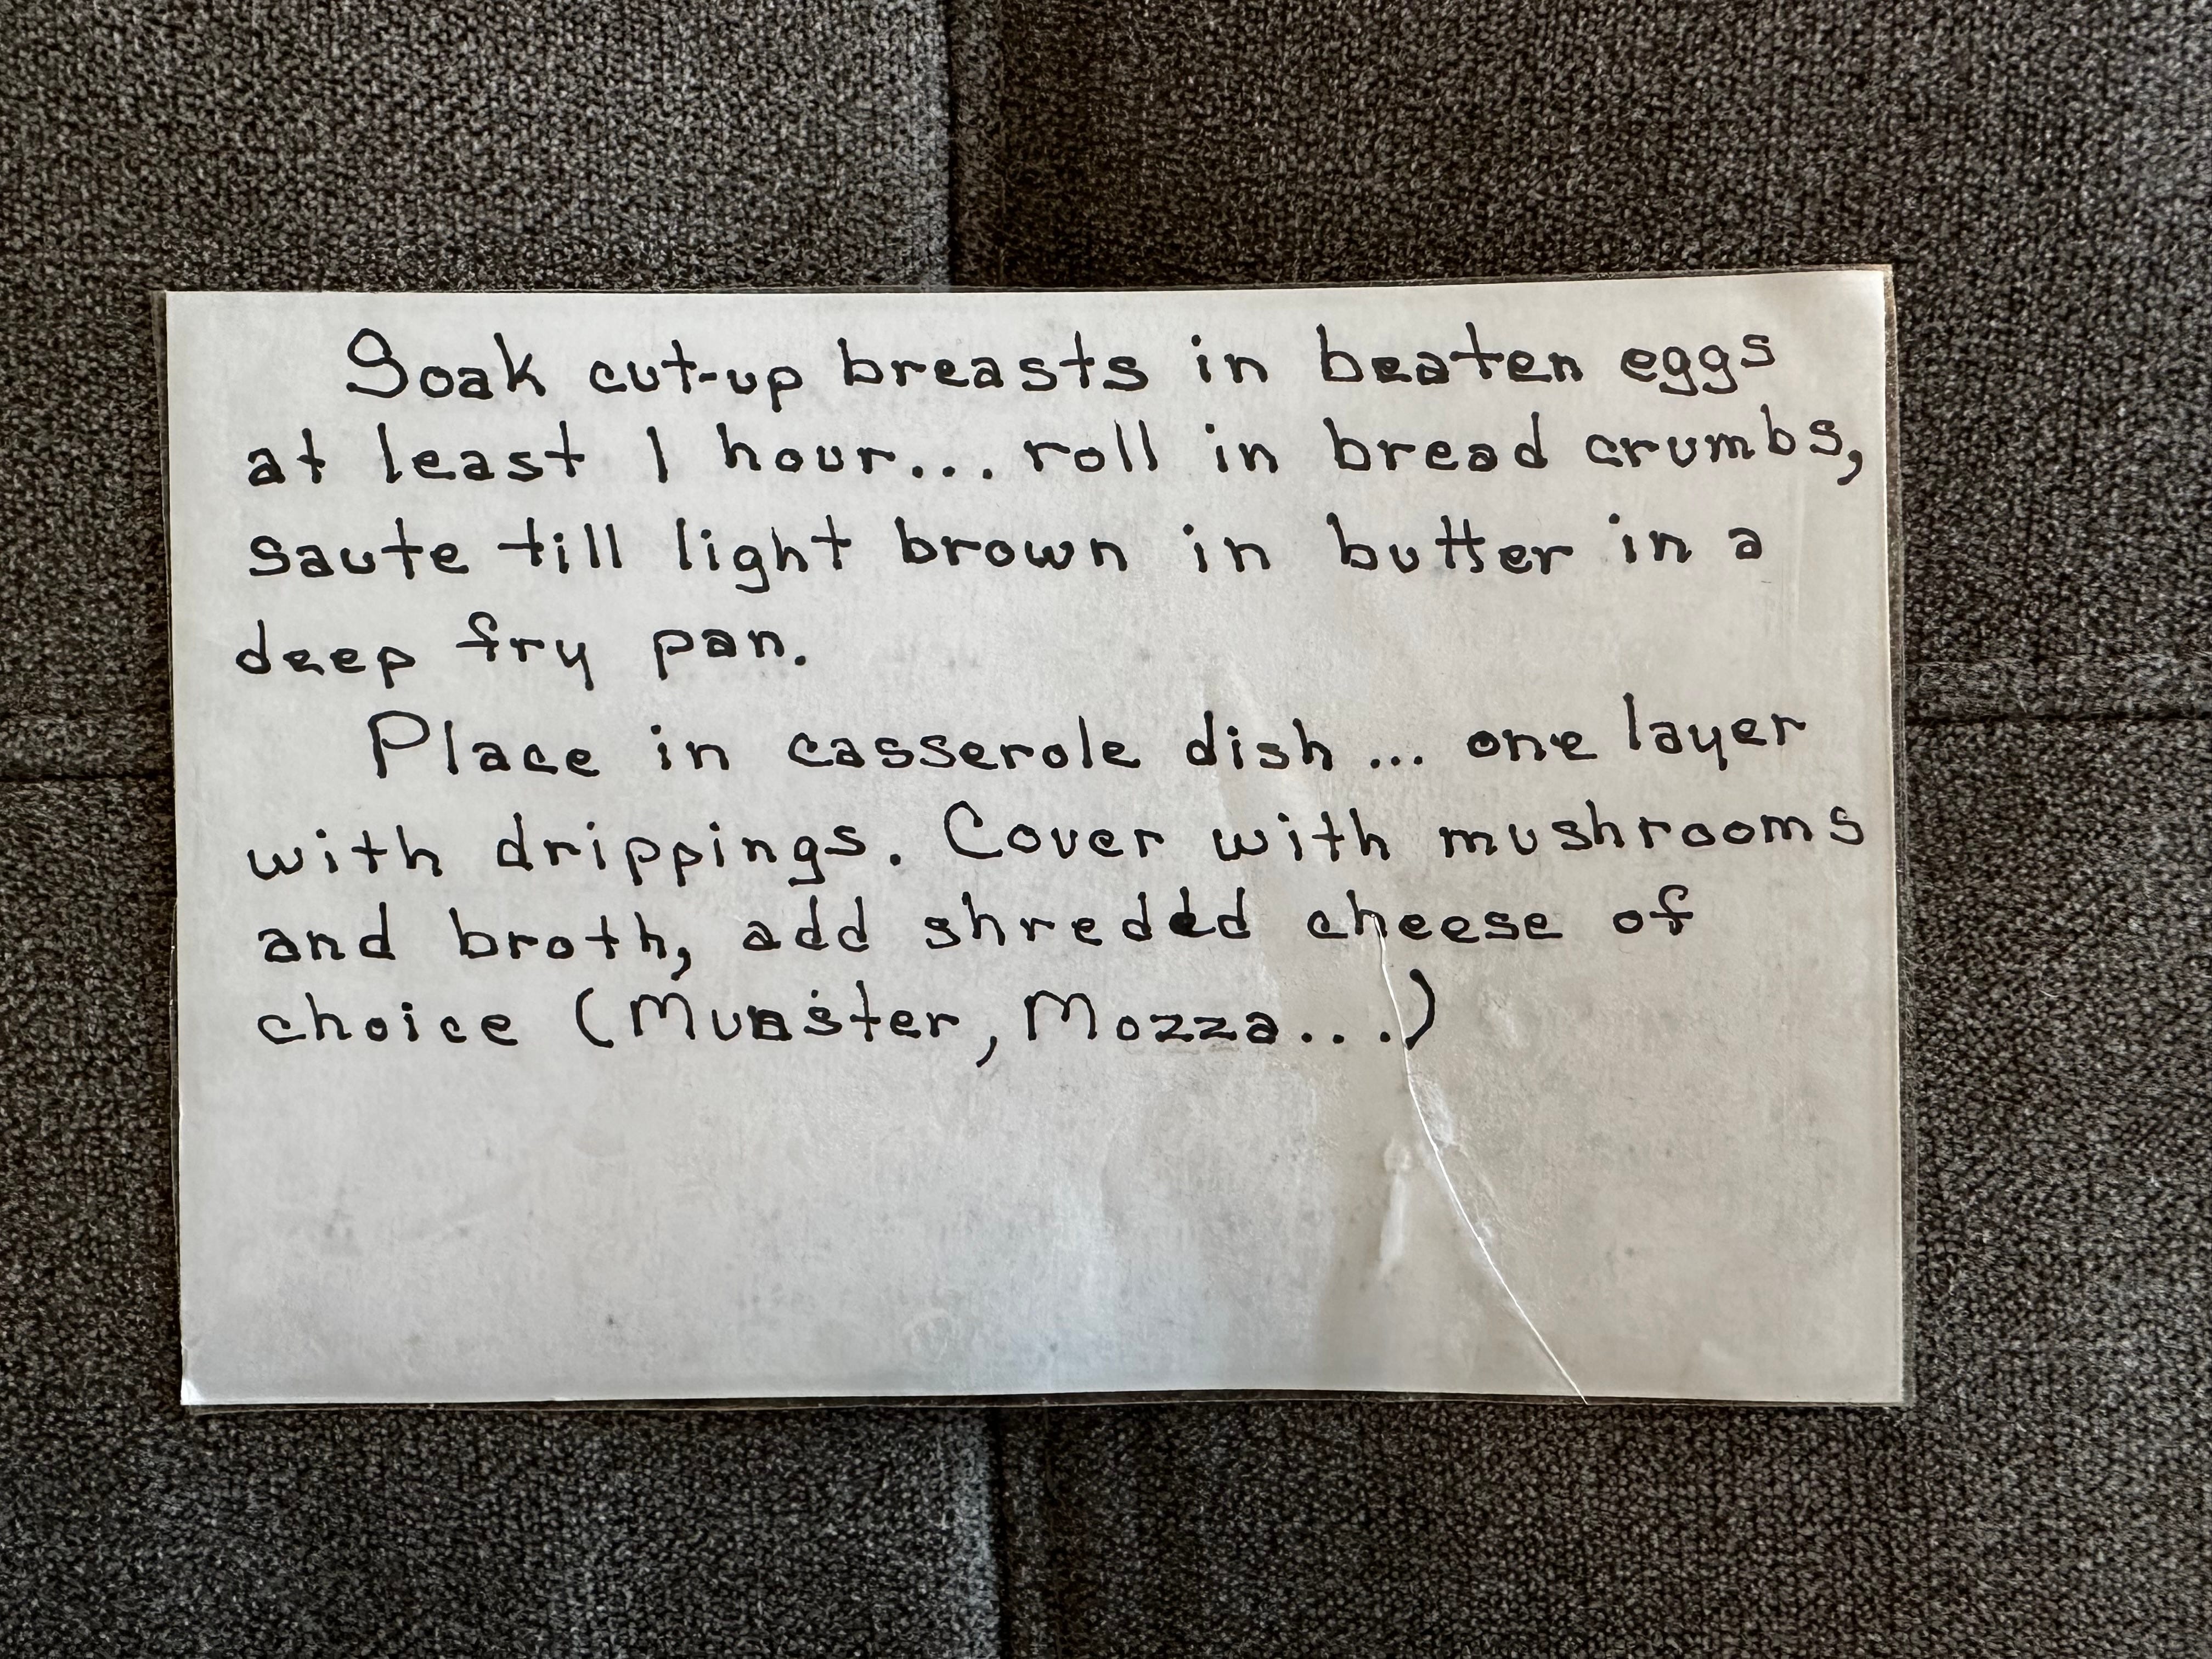 Soak cut-up breasts in beaten eggs
at least 1 hour... roll in bread crumbs,
saute till light brown in butter in a
deep fry pan.
Place in casserole dish... one layer
with drippings. Cover with mushrooms
and broth, add shredded cheese of
choice (Munster, Mozza...)